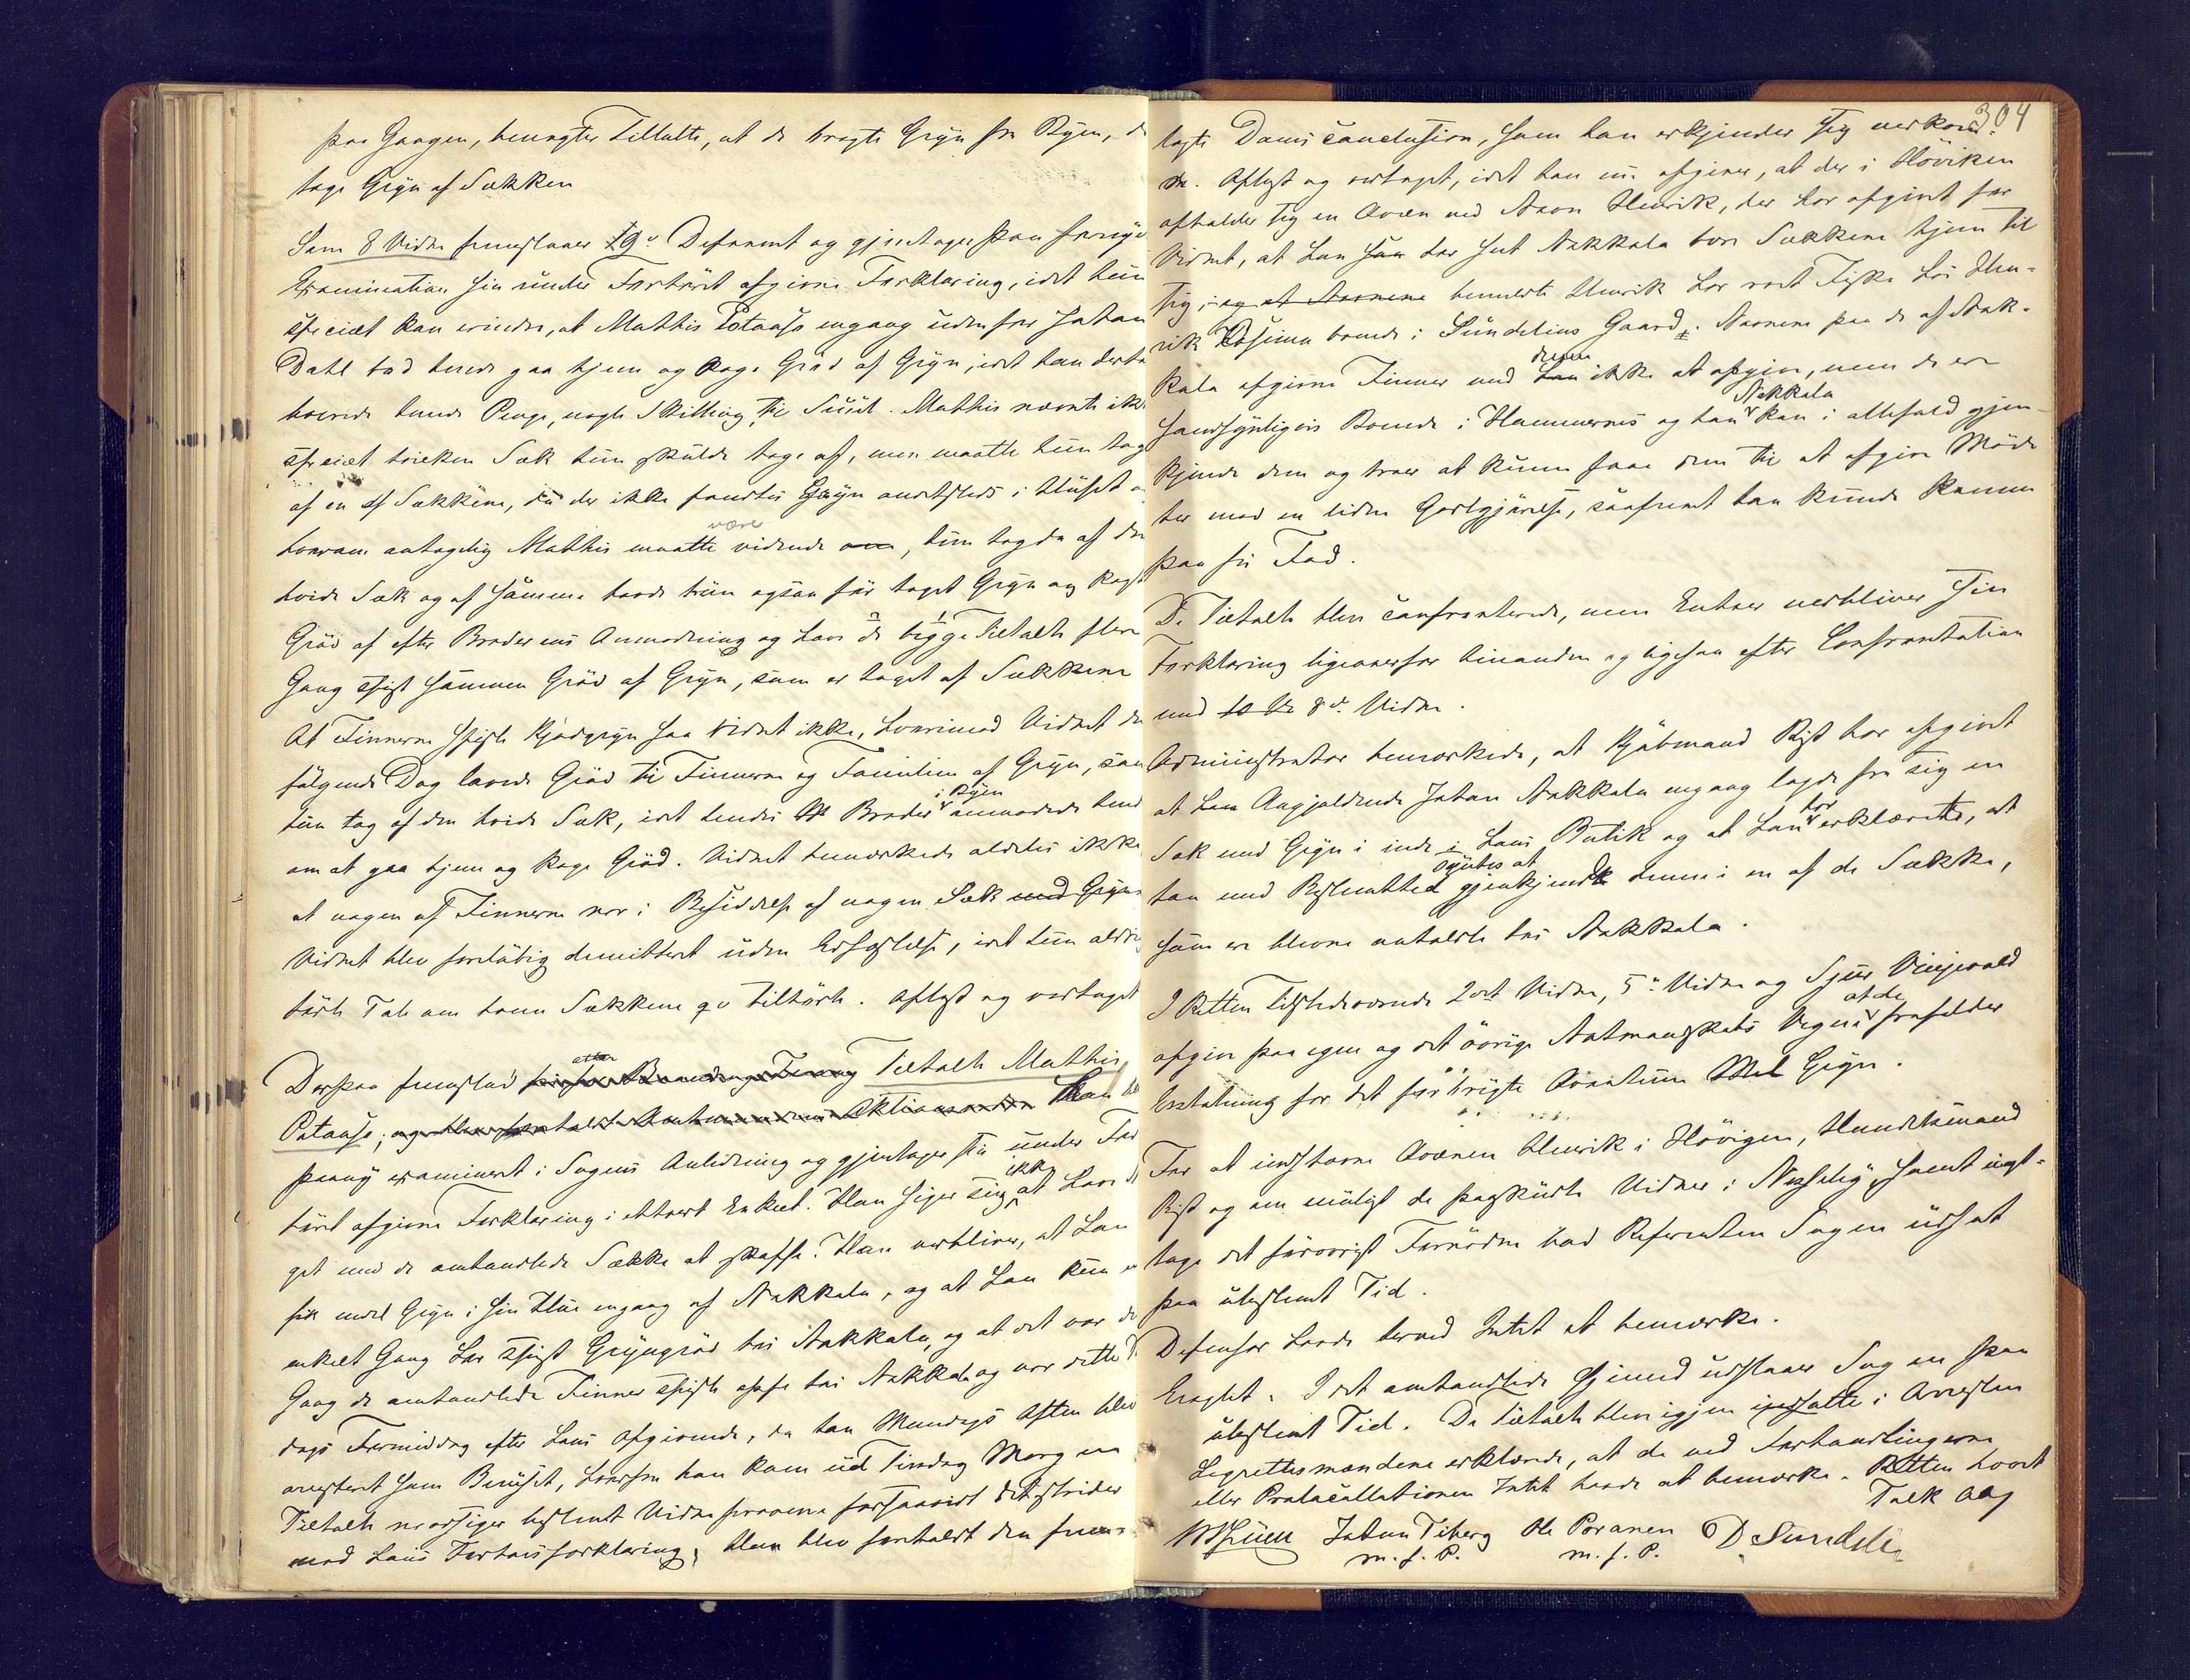 paa Gangen, benegter Tiltalte, at de bragte Gryn fra Byen, d
tage Gryn af Sækken
Som 8 Vidne fremstaaer 19de Deponent og gjentager paa fornyet
Examination sin under Forhöret afgivne Forklaring, idet hun
speciet kan erindre, at Mathis Potanse engang udenfor Johan
Dahl bad hende gaa hjem og koge Gröd af Gryn, idet han derhos
leverede hende Penge, nogle Skilling, til Suul. Mathis nævnte ikke
speciet hvilken Sæk hun skulde tage af, men maatte hun tage
af en af Sækkene, da der ikke fandtes Gryn andetsteds i Huset
hvorom antagelig Mathis maatte være vidende om, hun tog da af den
hvide Sæk og af samme havde hun ogsaa för taget Gryn og kogt
Gröd af efter Broderens Anmodning og have de begge Tiltalte flere
Gang spist sammen Gröd af Gryn, som er taget af Sækkene
At Finnerne spiste Kjödgryn saa Vidnet ikke, hvorimod Vidnet den
fölgende Dag lavede Gröd til Finnerne og Familien af Gryn, som
hun tog af den hvide Sæk, idet hendes Broder i Byen anmodede hende
om at gaa hjem og koge Gröd. Vidnet bemærkede aldeles ikke
at nogen af Finnerne var i Besiddelse af nogen Sæk med Gryn
Vidnet blev forelöbig demitteret uden Edfæstelse, idet hun aldrig
hörte Tale om hvem Sækkene tilhörte. Oplæst og vedtaget
Derpaa fremstod Tiltalte Mathis
Potanse, Han blev
paany examineret i Sagens Anledning og gjentager sin under For
höret afgivne Forklaring i ethvert Enkelt. Han siger sig ikke at have
get med de omhandlede Sække at skaffe. Han vedbliver, at han
fik endel Gryn i sin Hue engang af Nakkala, og at han kun en
enkelt Gang har spist Gryngröd hos Nakkala, og at det var den
Gang de omhandlede Finner spiste oppe hos Nakkala og var dette
dags Formiddag efter hans Opgivende, da han Mandags Aften blev
arresteret som Beruset, hvorfra han kom ud Tirsdag Morgen
Tiltalte modsiger bestemt Vidneprovene forsaavidt det strider
mod hans Forhörsforklaring. Han blev foreholdt den frem-
304
lagte Doms Conclusion, som han erkjender sig vedkom-
de. Oplæst og vedtaget, idet han nu opgiver, at der i Höviken
opholder sig en Qvæn ved Navn Henrik, der har opgivet for
Vidnet, at han har seet Nakkala bære Sækkene hjem til
sig, og at Navnene bemeldte Henrik har roet Fiske hos Hen-
rik Kosima boende i Sundelius Gaard. Navnene paa de af Nak-
kala opgivne Finner ved denne ikke at opgive, men de ere
sandsynligvis Boende i Hammernes og han Nakkala kan i altfald gjen-
kjende dem og troer at kunne faae dem til at afgive Möde
her mod en liden Godtgjörelse, saafremt han kunde komme
paa fri Fod.
De Tiltalte bleve confronterede, men Enhver vedbliver sin
Forklaring ligeoverfor hinanden og ligesaa efter Confrontation
med 8de Vidne.
Administrator bemærkede, at Kjöbmand Rist har opgivet
at han Angjældende Johan Nakkala engang lagde fra sig en
Sæk med Gryn i inde i hans Butik og at han har erklæret, at
han med Bestemthed syntes at gjenkjende denne i en af de Sække,
som ere blevne antrufne hos Nakkala.
I Retten tilstedeværende 2det Vidne, 5te Vidne og Sjur
opgive paa egne og det övrige Notmandskabs Vegne at de frafalder
Erstatning for det forbrugte Qvantum Gryn.
For at indstævne Qvænen Henrik i Hövigen, Handelsmand
Rist og om muligt de paaskudte Vidner i Nesseby samt iagt-
tage det forövrigt Fornödne bad Referenten Sagen udsat
paa ubestemt Tid.
Defensor havde herved Intet at bemærke.
Eragtet: I det omhandlede Öiemed udstaaer Sagen paa
ubestemt Tid. De Tiltalte bleve igjen indsatte i Arresten
Lagrettesmændene erklærede, at de ved Forhandlingerne
eller Protocollationen Intet havde at bemærke. Retten hævet
Falk Aag
Johan Tiberg Ole Poranen D. Sundeli
m. f. P. m. f. P.